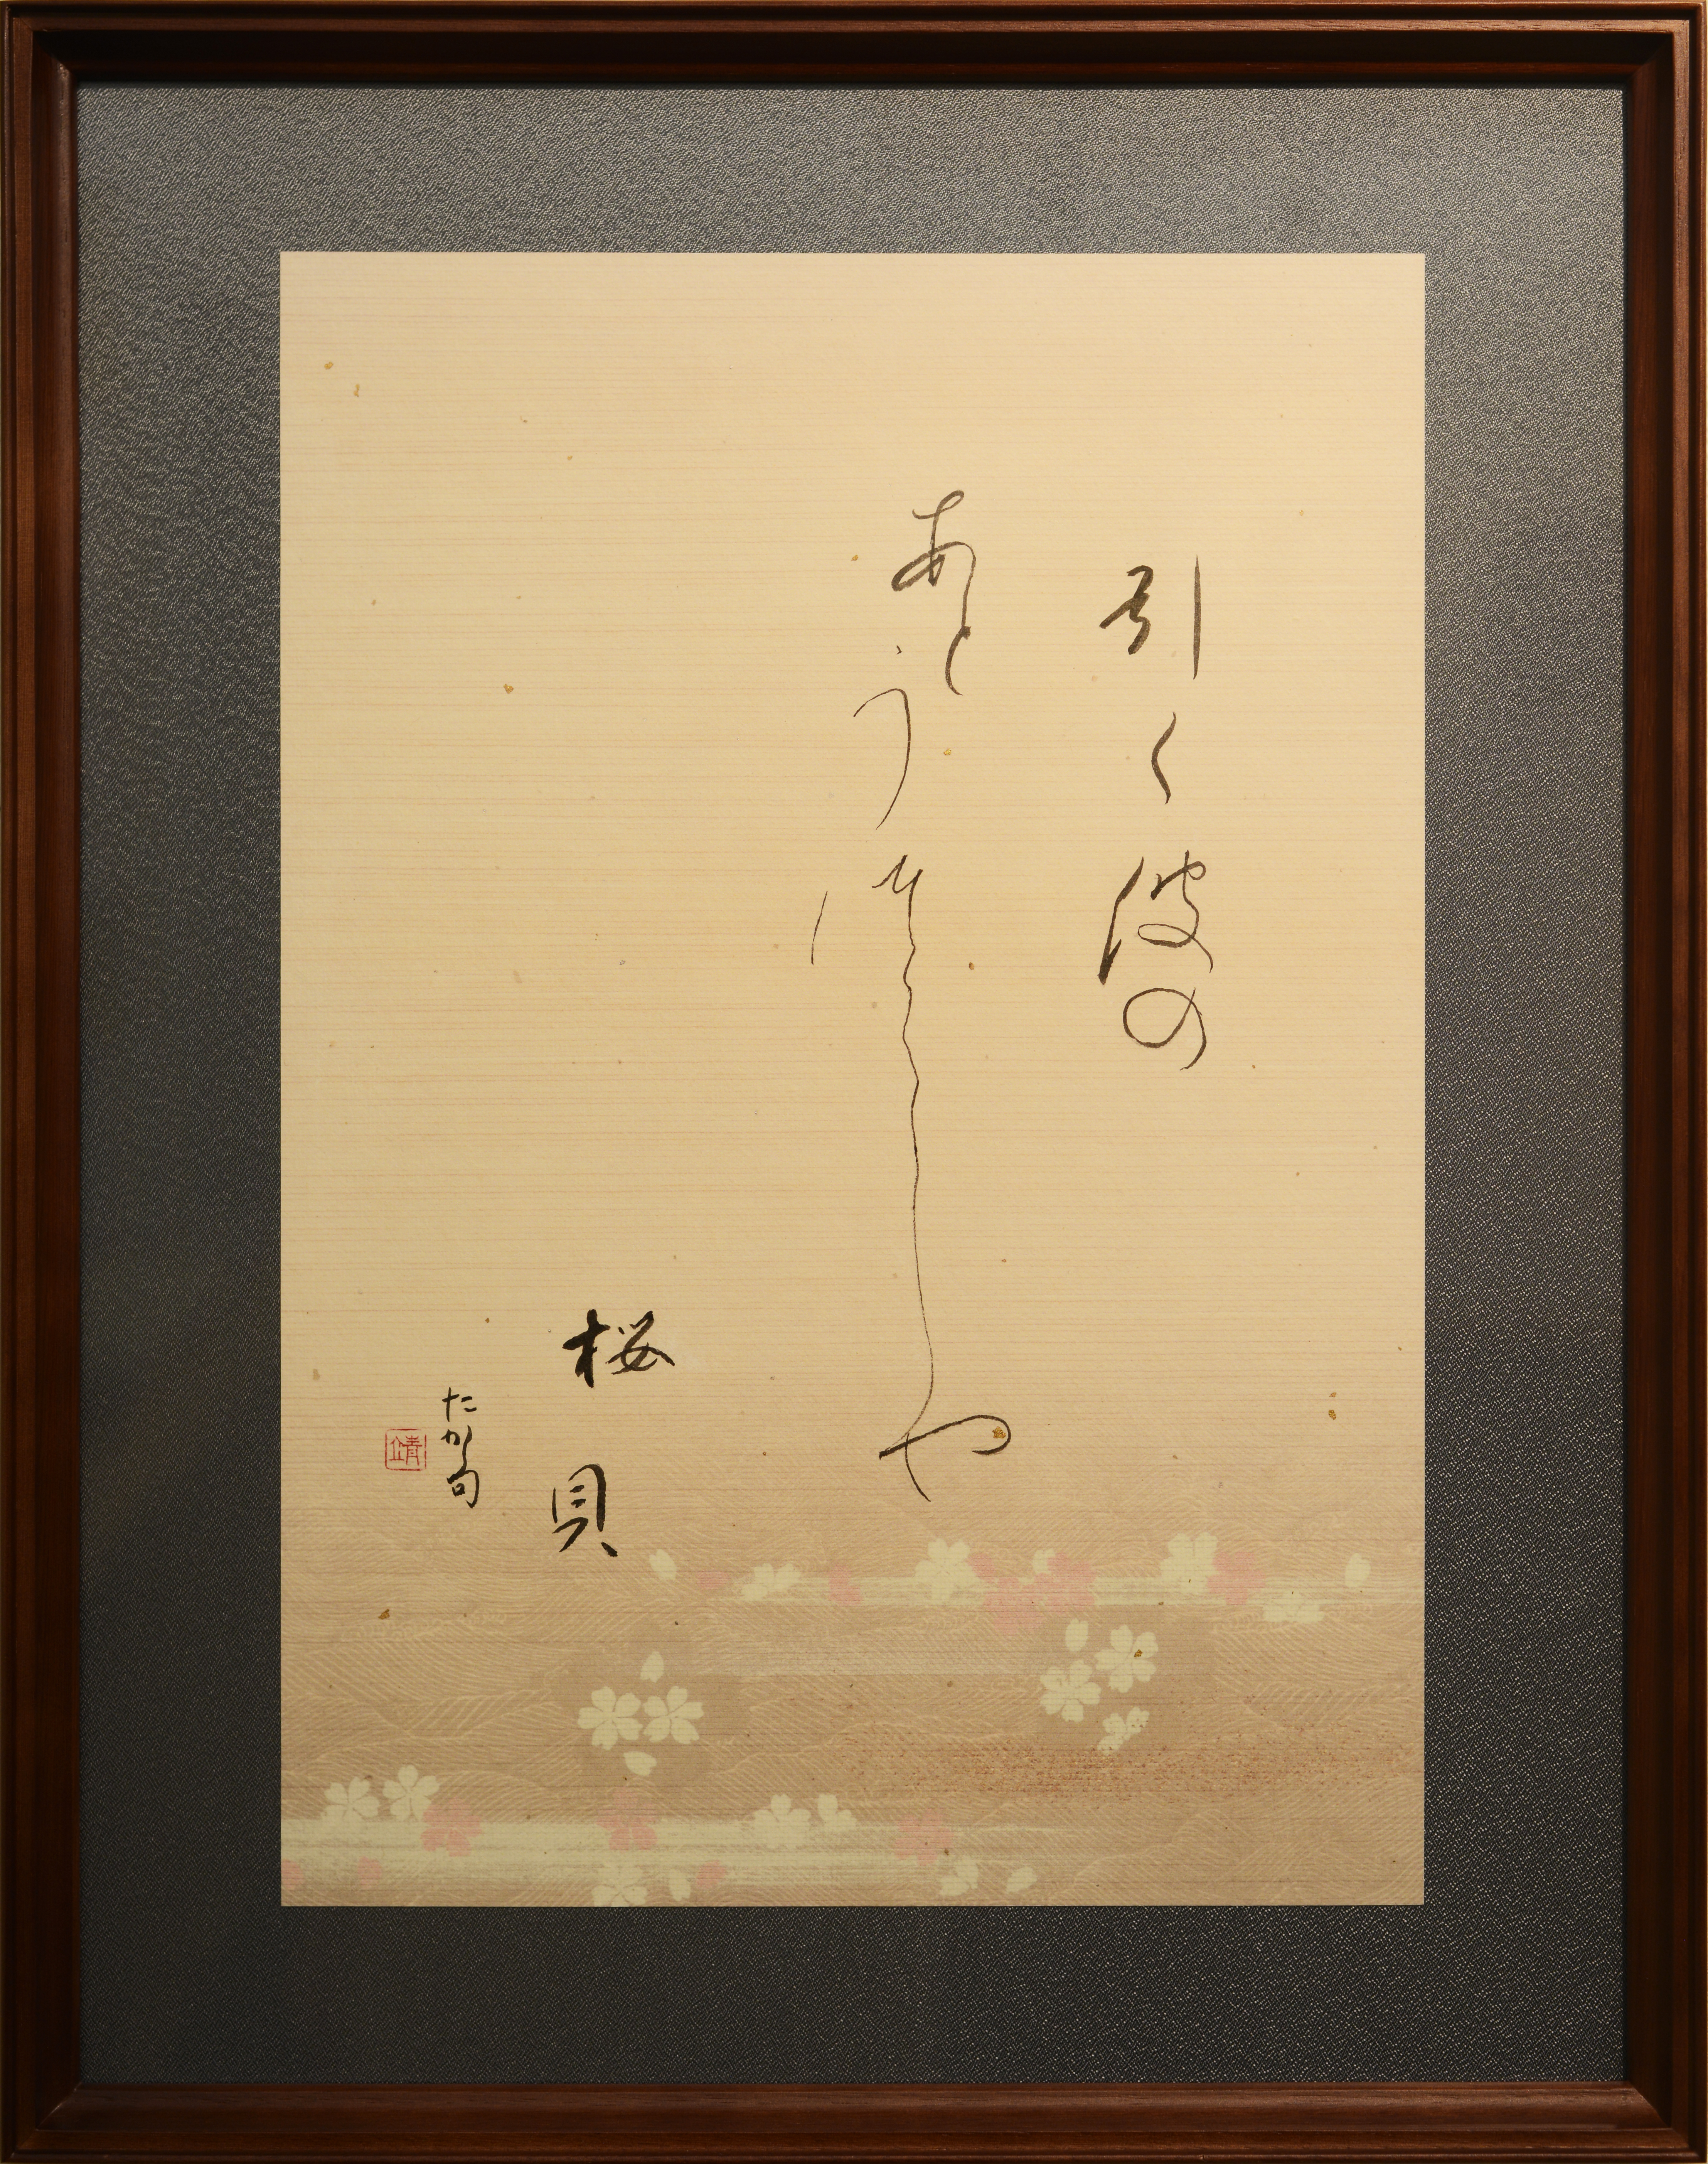 引く波の
あとうつくしや
桜貝
たかし句
靖